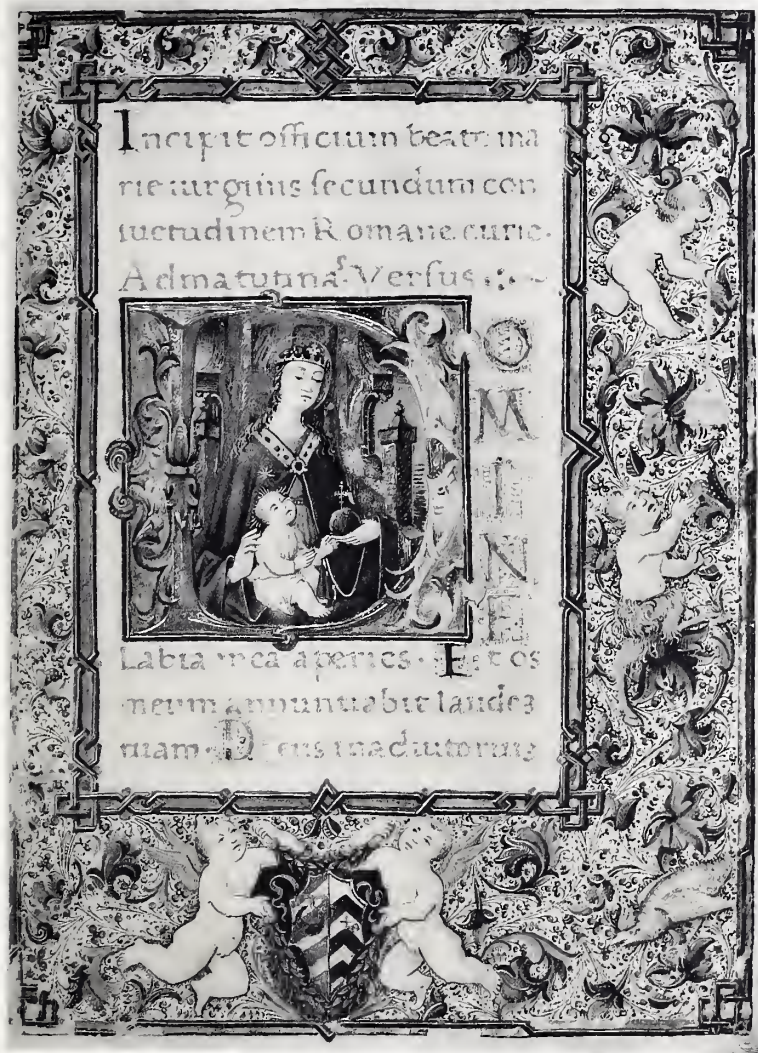 Incipit officium beate ma
rie uirginis secundum con
suetudinem Romane curie.
Ad matutinaʒ. Versus
D
O
M
I
N
E
Labia mea aperies. Et os
meum annuntiabit laudeʒ
tuam. Deus in adiutoriuʒ